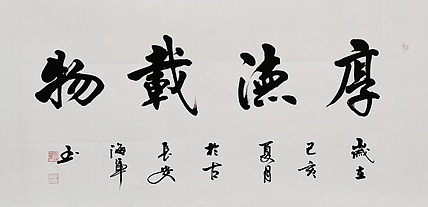 厚德載物
歲在己亥夏月於古長安海軍书